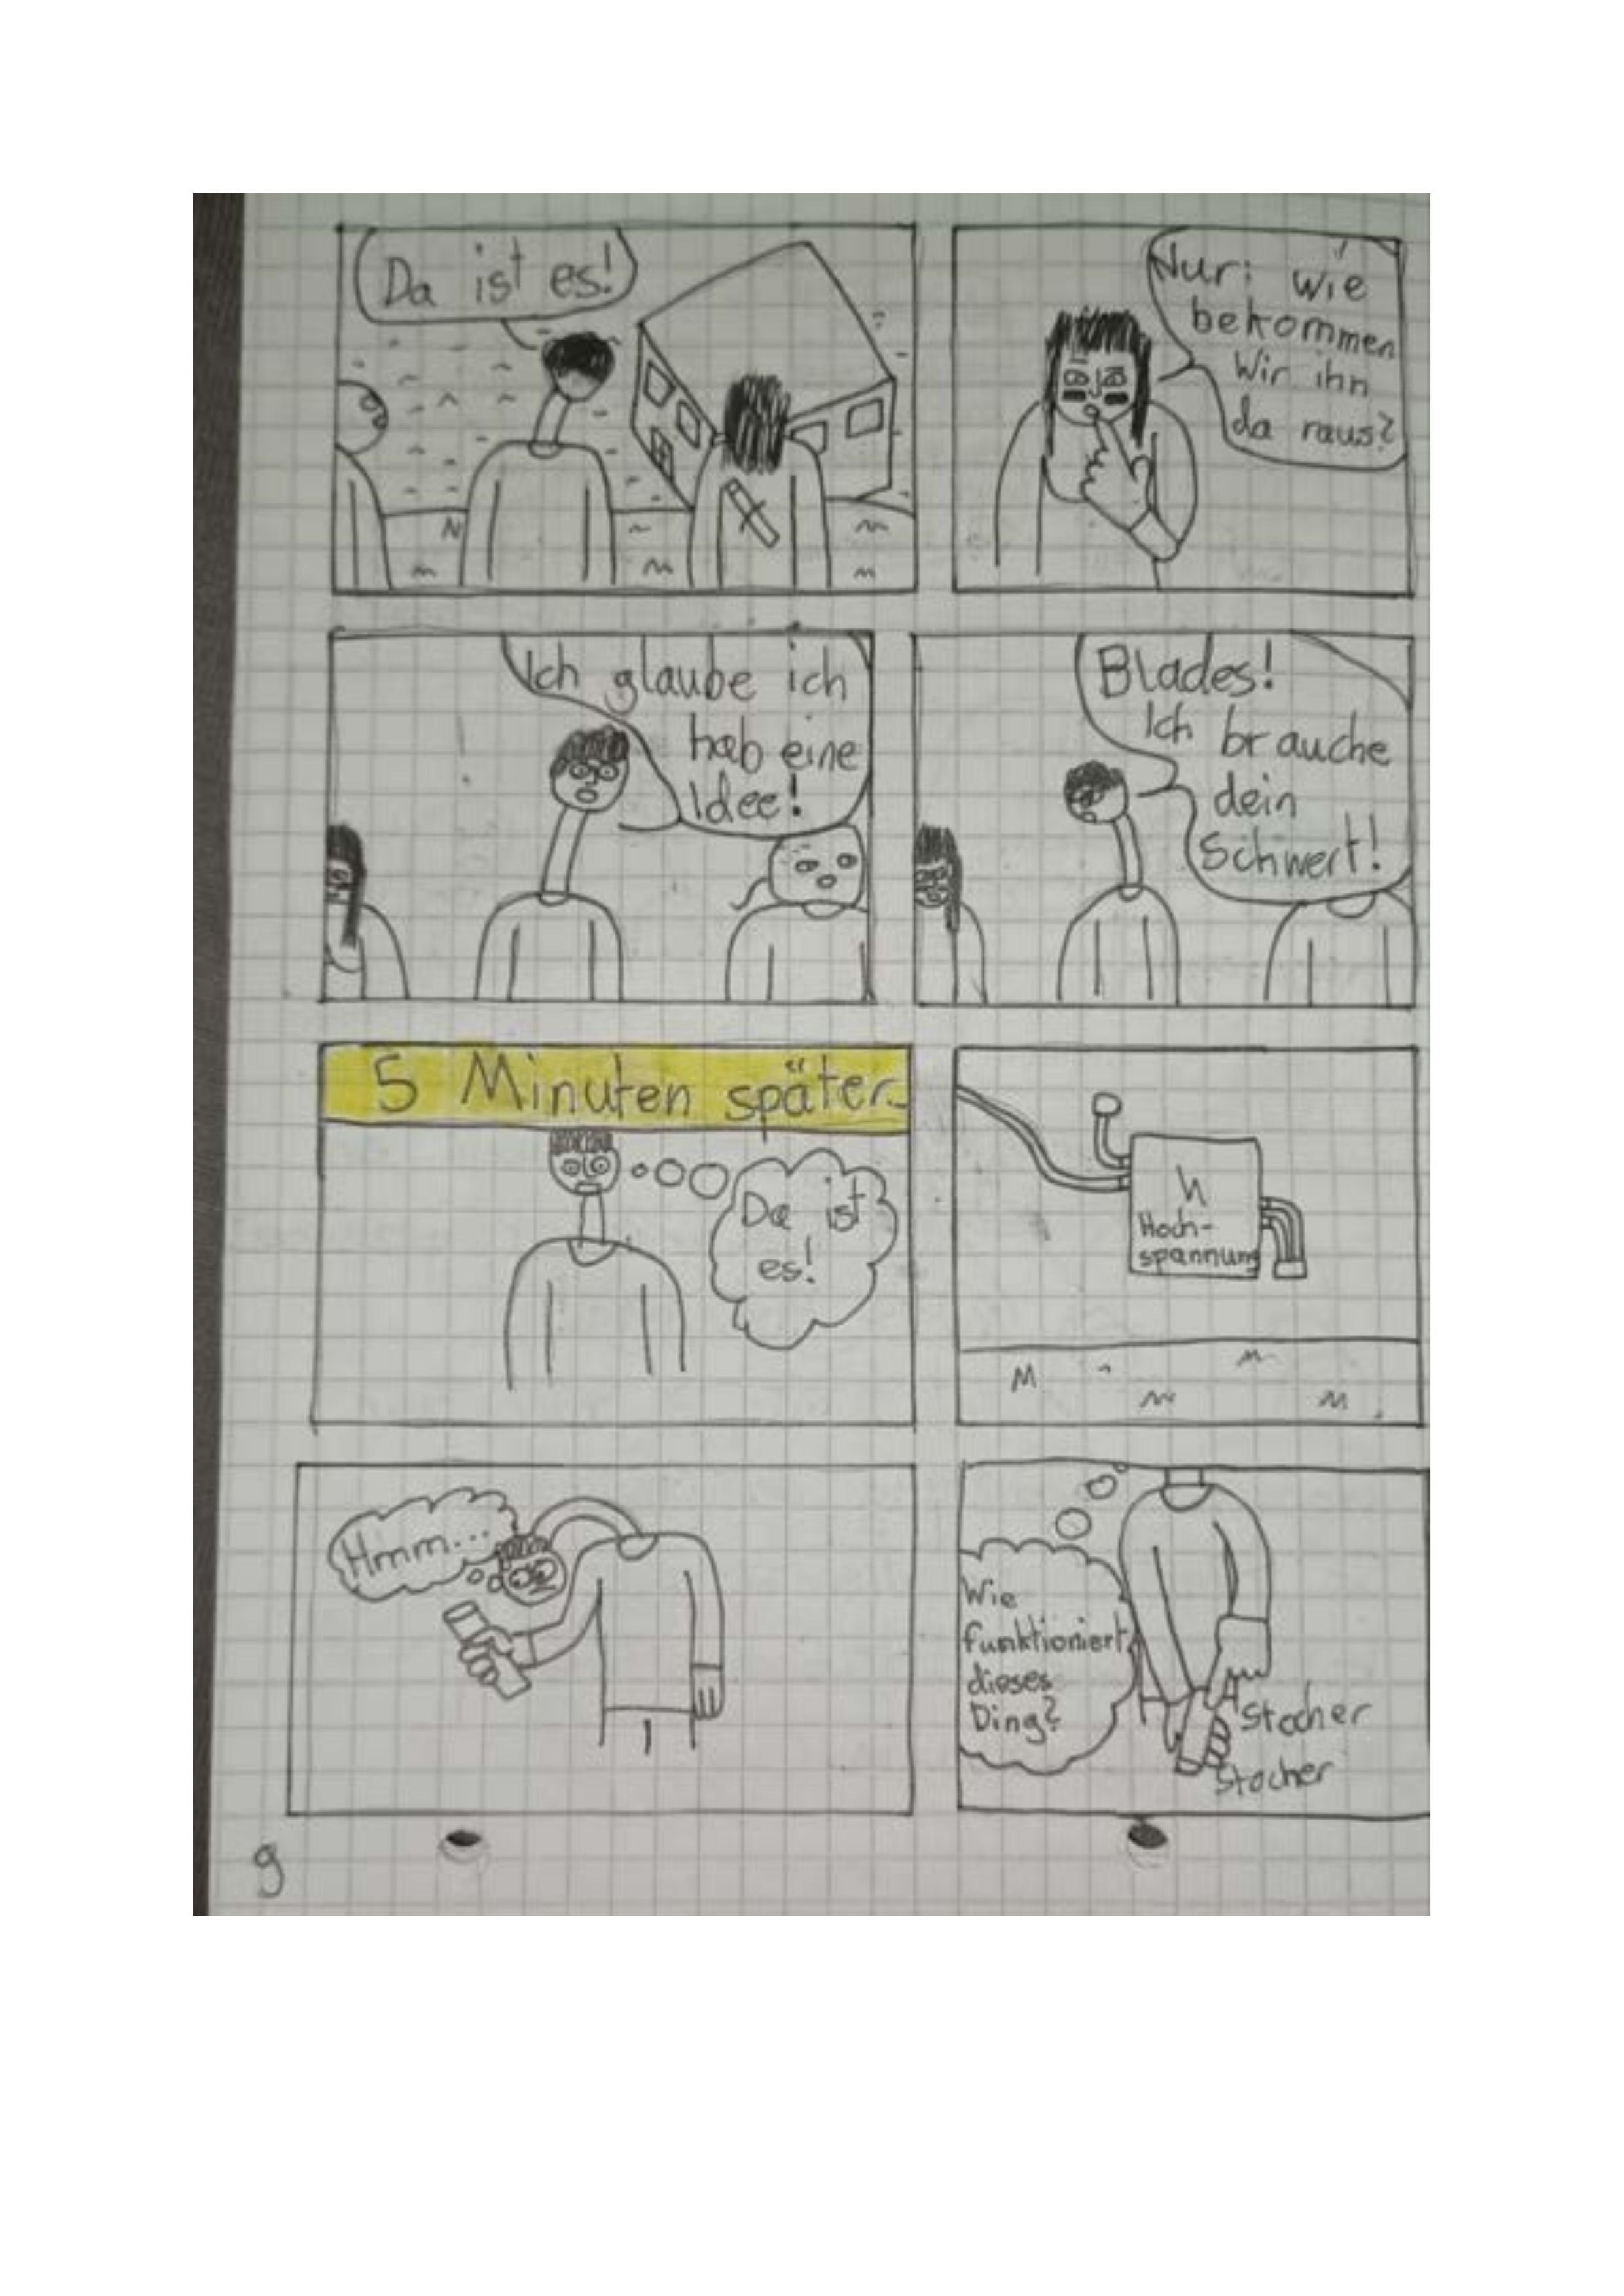 Da ist es!
Nur: wie
bekommen
Wir ihn
da raus?
Ich glaube ich
hab eine
Idee!
Blades!
Ich brauche
dein
Schwert!
5 Minuten später
Da ist
es!
Hoch-
spannung
Hmm...
Wie
funktioniert
dieses
Ding?
Stocher
Stocher
9